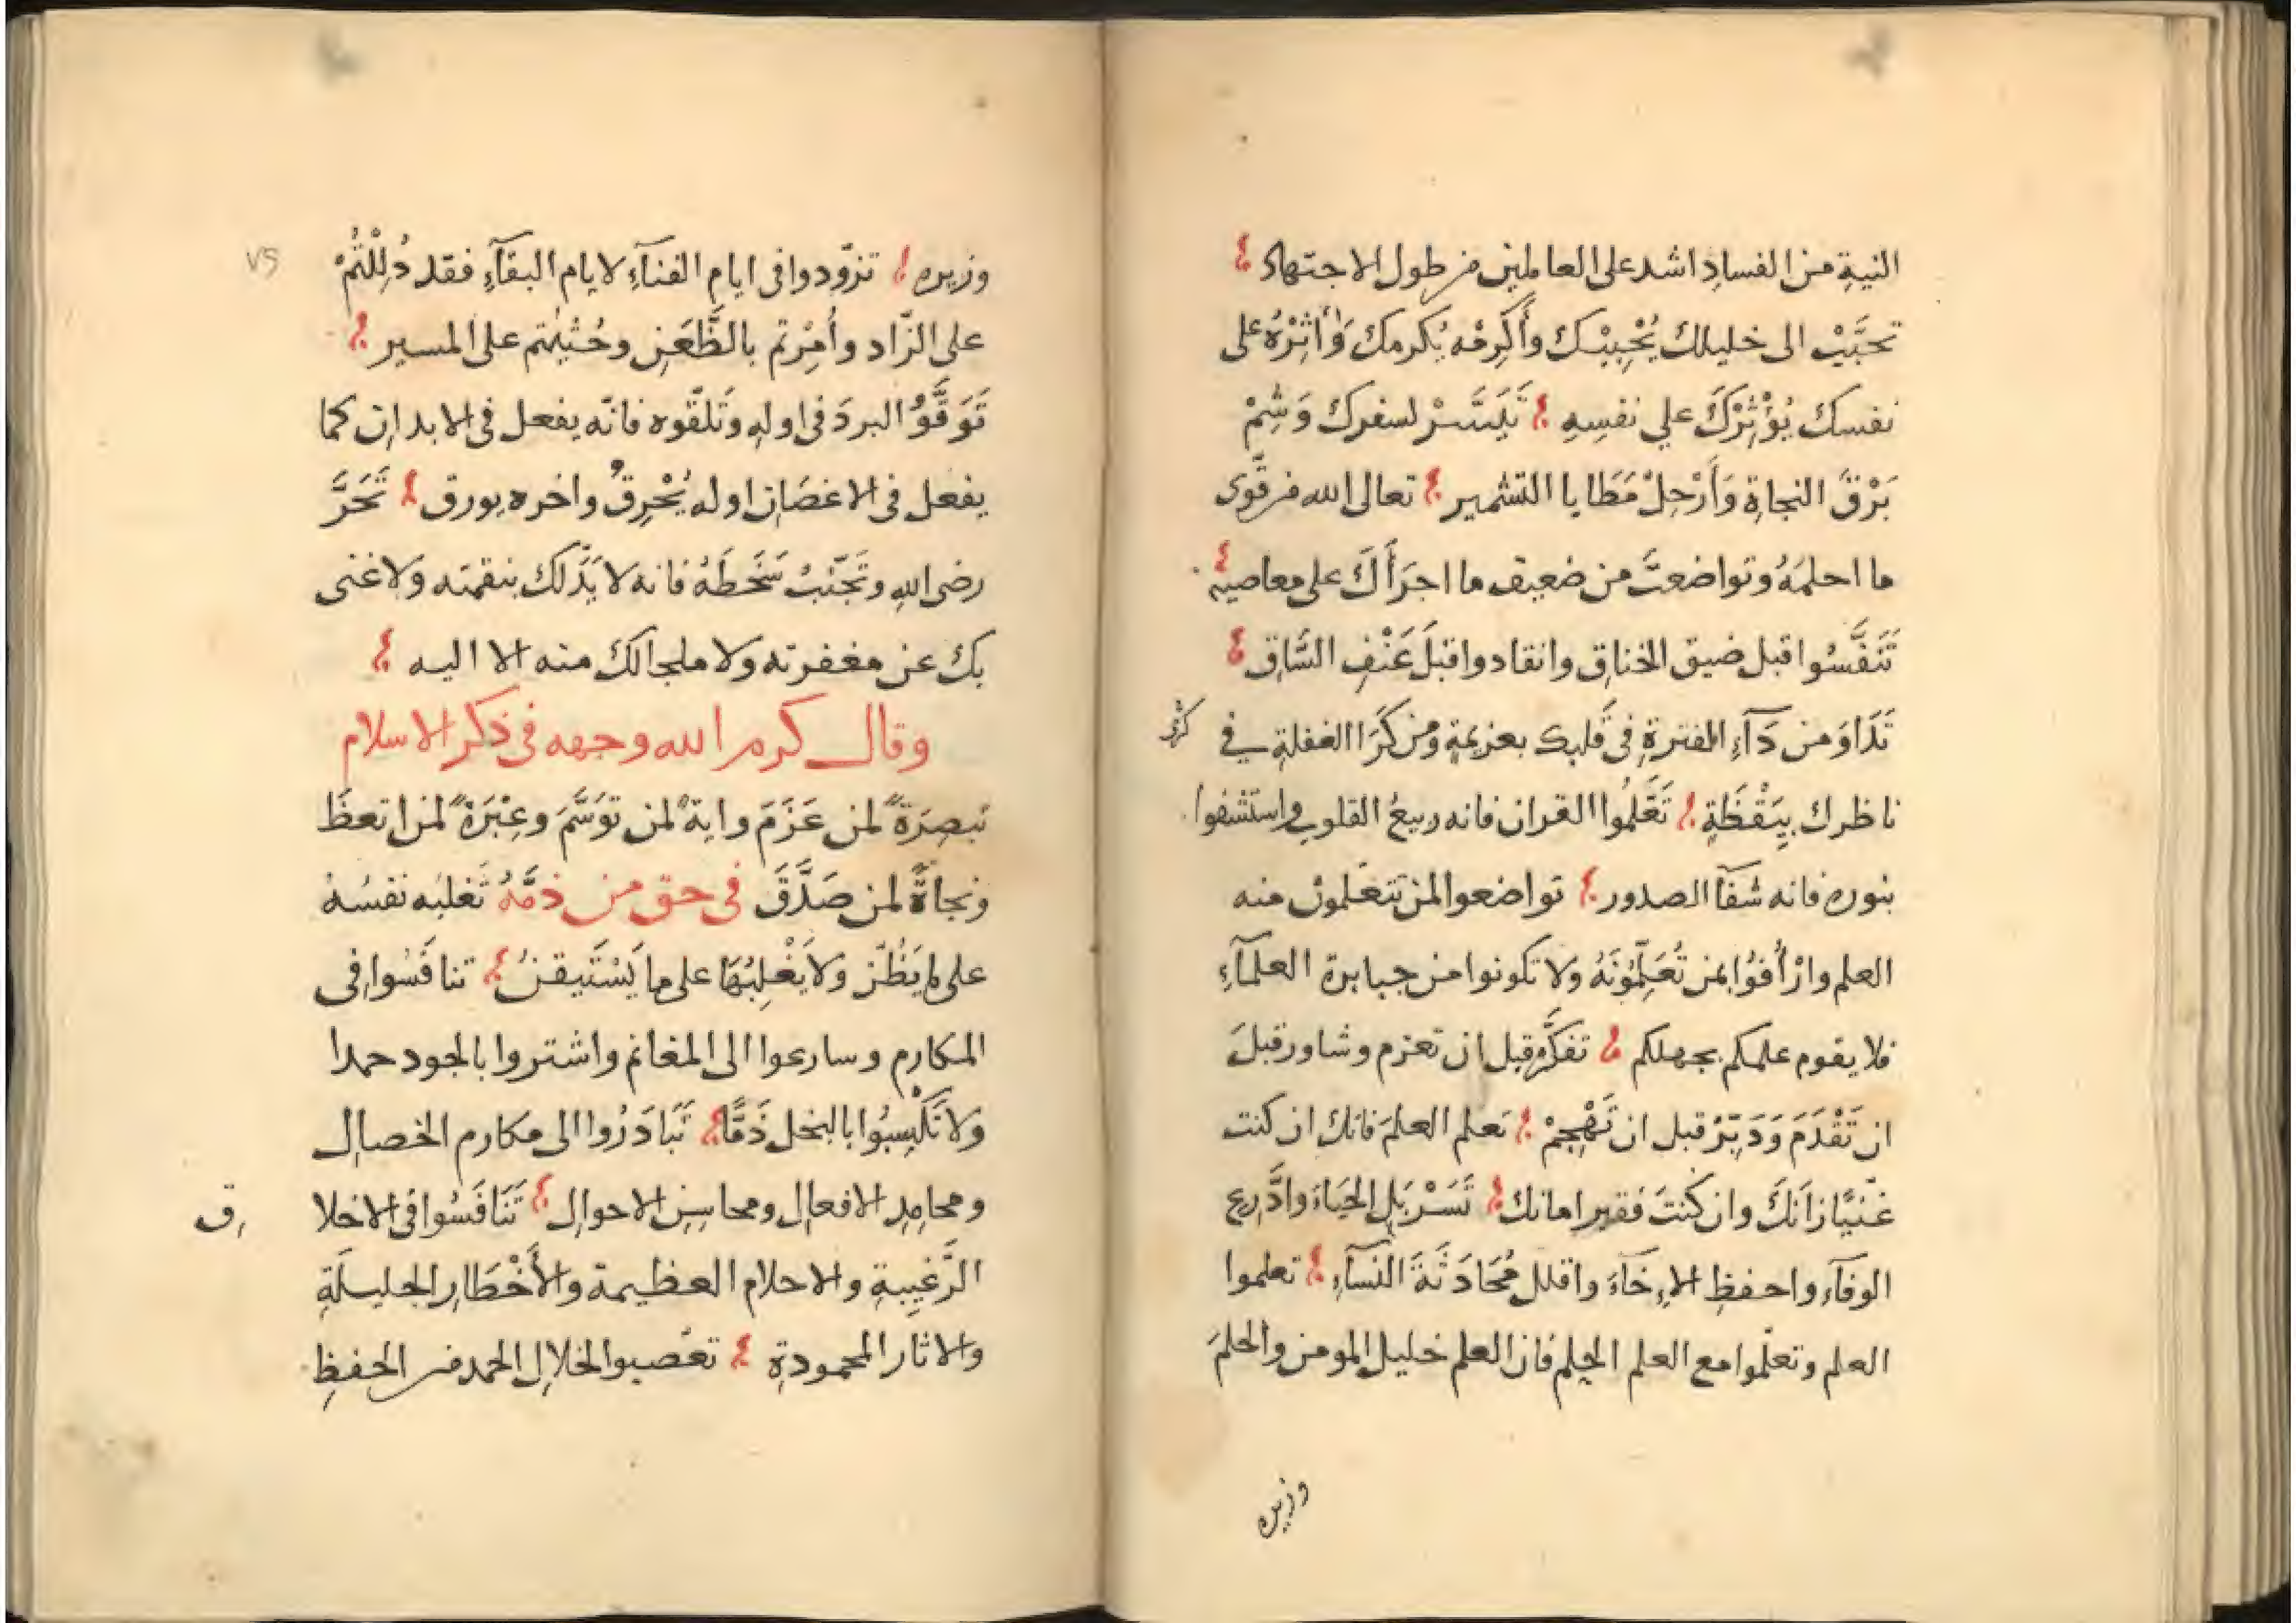 النيةِ من الفسادِ اشد على العاملين من طول الاجتهاد
تحبَّبْ الى خليلك يُحْبِبْك وأَكْرِمْه يُكرمك وَأٰثِرْهُ على
نفسك يُؤْثِرْكَ علي نفسِهِ تَيَسَّرْ لسفرك وَشِمْ
بَرْقَ النجاةِ وَأَرْحِلْ مَطَايا التشمير تعالى الله من قَّوى
ما احلمَهُ وتواضعتَ من ضعيف ما اجرَأَكَ على معاصيه
تَنَفَّسُوا قبل ضيق الخناق وانقادوا قبلَ عَنْفِ السَّاق
تَدَاوَ من دَآءِ الفترةِ فى قَلبك بعزيمةٍ ومن كَرَا الغفلةِ في
كرى
ناظرك بِيَقْظَةٍ تَعَلَّمُوا القران فانه ربيعُ القلوب واستشفوا
بنوره فانه شفآ الصدور تواضعوا لمن تتعَلمون منه
العلم وارْأَفوُا بمن تُعَلِّمُونَهُ ولا تكونوا من جبابرة العلمآءِ
فلا يقوم علمكم بجهلكم تفكَّر قبل ان تعزم وشاور قبلَ
ان تَقْدَمَ وَدَبِّرْ قبل ان تَهْجِمْ تعلم العلمَ فانك ان كنت
غَنيًا زَانَكَ وان كنتَ فقيرا مانك تَسَرْبَلِ الحَيَاءَ وادَّرِع
الوفآء واحفظِ الاِخَآءَ واقلل مُحَادَثَةَ النسآءِ تعلموا
العلم وتعلّموا مع العلم الحِلم فان العلم خليل المومن والحلمَ
وزيره
٧٥
وزيره تزوّدوا فى ايام الفنآءِ لايام البقآءِ فقد دُلِلْتُمْ
على الزّاد وأُمِرْتم بالظَّعَنِ وحُثِيْتم على المسير
تَوَقَّوُ البردَ فى اوله وتَلقّوه فانّه يفعل فى الابدان كما
يفعل فى الاغصَان اوله يُحْرِقُ واخره يورق تَحَرَّ
رضى اللهِ وتَجَنّبْ سَخَطَهُ فانه لا يَدَ لك بنقمته وَلا غنى
بك عن مغفرته ولا ملجا لك منه الا اليه
وقال كرم الله وجهه فى ذكر الاسلام
تبصِرَةً لمن عَزَمَ واية لمن توَسَّمَ وعِبْرَةً لمن اتعظَ
ونجاةً لمن صَدَّقَ فى حق من ذمَّهُ تَغلبُه نفسُهُ
على ما يَظُنّ ولا يَغْلِبُهَا على ما يَسْتَيقنُ تنافَسُوا فى
المكارم وسارعوا الى المغانم واشتروا بالجود حمدا
ولا تَكْسِبُوا بالبخل ذَمًّا تَبَادَرُوا الى مكارم الخصال
ومحامِدِ الافعال ومحاسِنِ الاحوالِ تَنَافَسُوا فى الاخلا
ق
الرَّغيبةِ والاحلام العظيمة والأَخْطَارِ الجليلَةِ
والاثار المحمودةِ تعَصبوا لخلالِ الحمد من الحفظِ